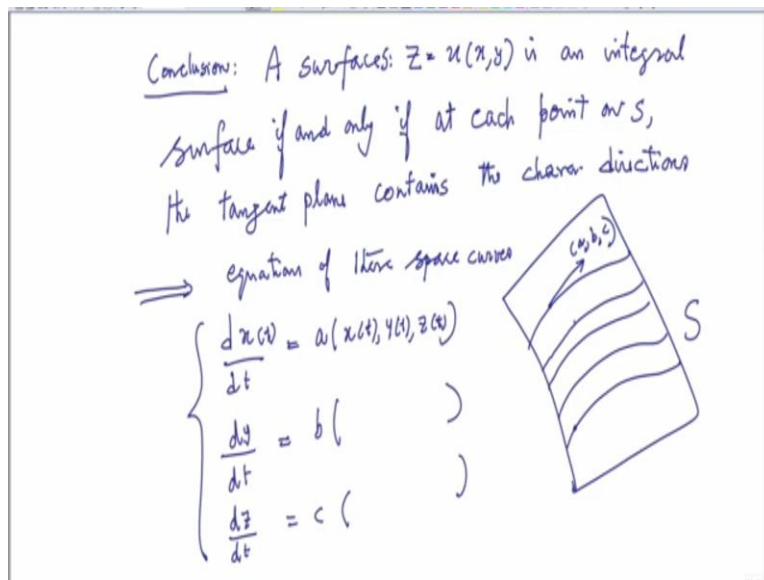 Conclusion: A surfaces: z = u(x,y) is an integral
surface if and only if at each point on S,
the tangent plane contains the charar directions
⟹ equation of these space curves
dx(t)/dt = a(x(t), y(t), z(t))
dy/dt = b( )
dz/dt = c( )
(a,b,c)
S